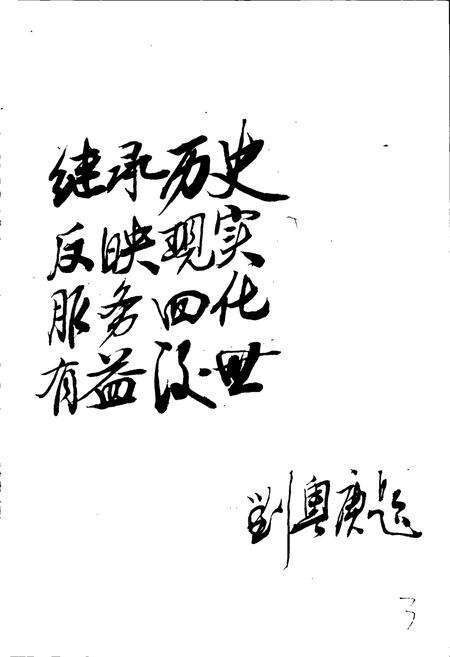 继承历史
反映现实
服务四化
有益后世
刘奥庚题
3